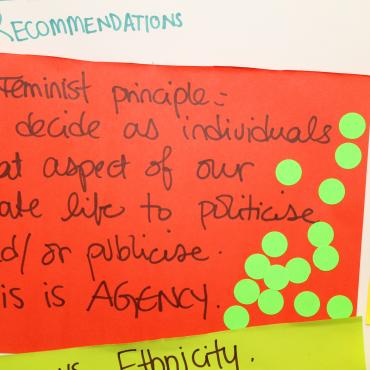 RECOMMENDATIONS
Feminist principle:-
decide as individuals
at aspect of our
ate life to politicise
d/or publicise.
is is AGENCY.
vs Ethnicity.